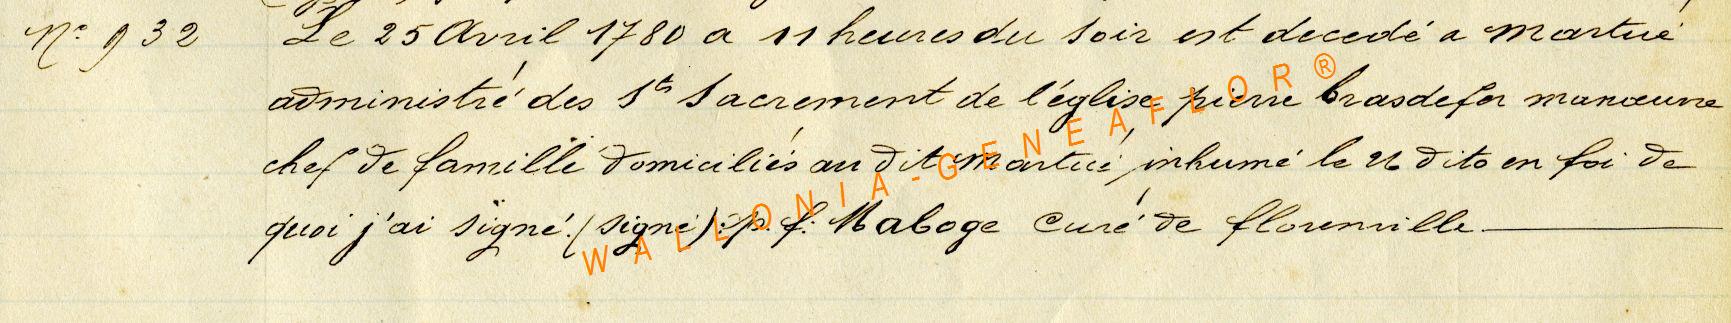 N° 932 Le 25 Avril 1780 a 11 heures du soir est decedé a Martué
administré des Sts Sacrement de l'église pierre brasdefer manœuvre
chef de famille domiciliés au dit Martué, inhumé le 26 dito en foi de
quoi j'ai signé. (signé): p. f. Maboge Curé de florenville
WALLONIA-GENEAFLOR®